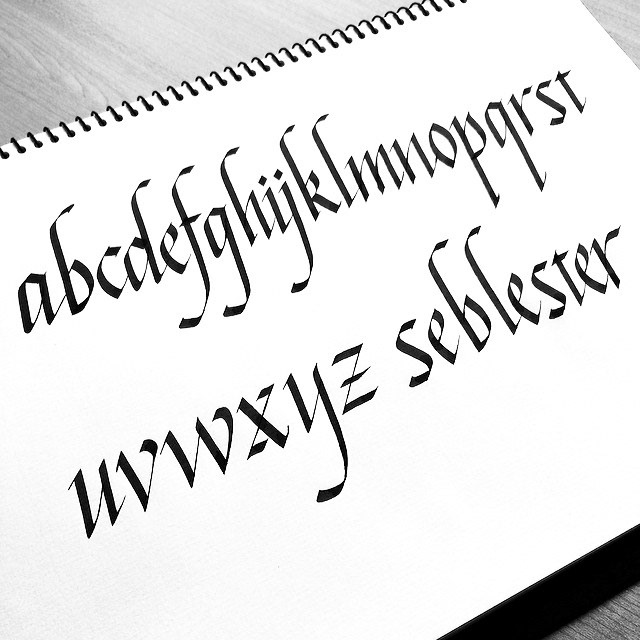 abcdefghijklmnopqrst
uvwxyz seblester